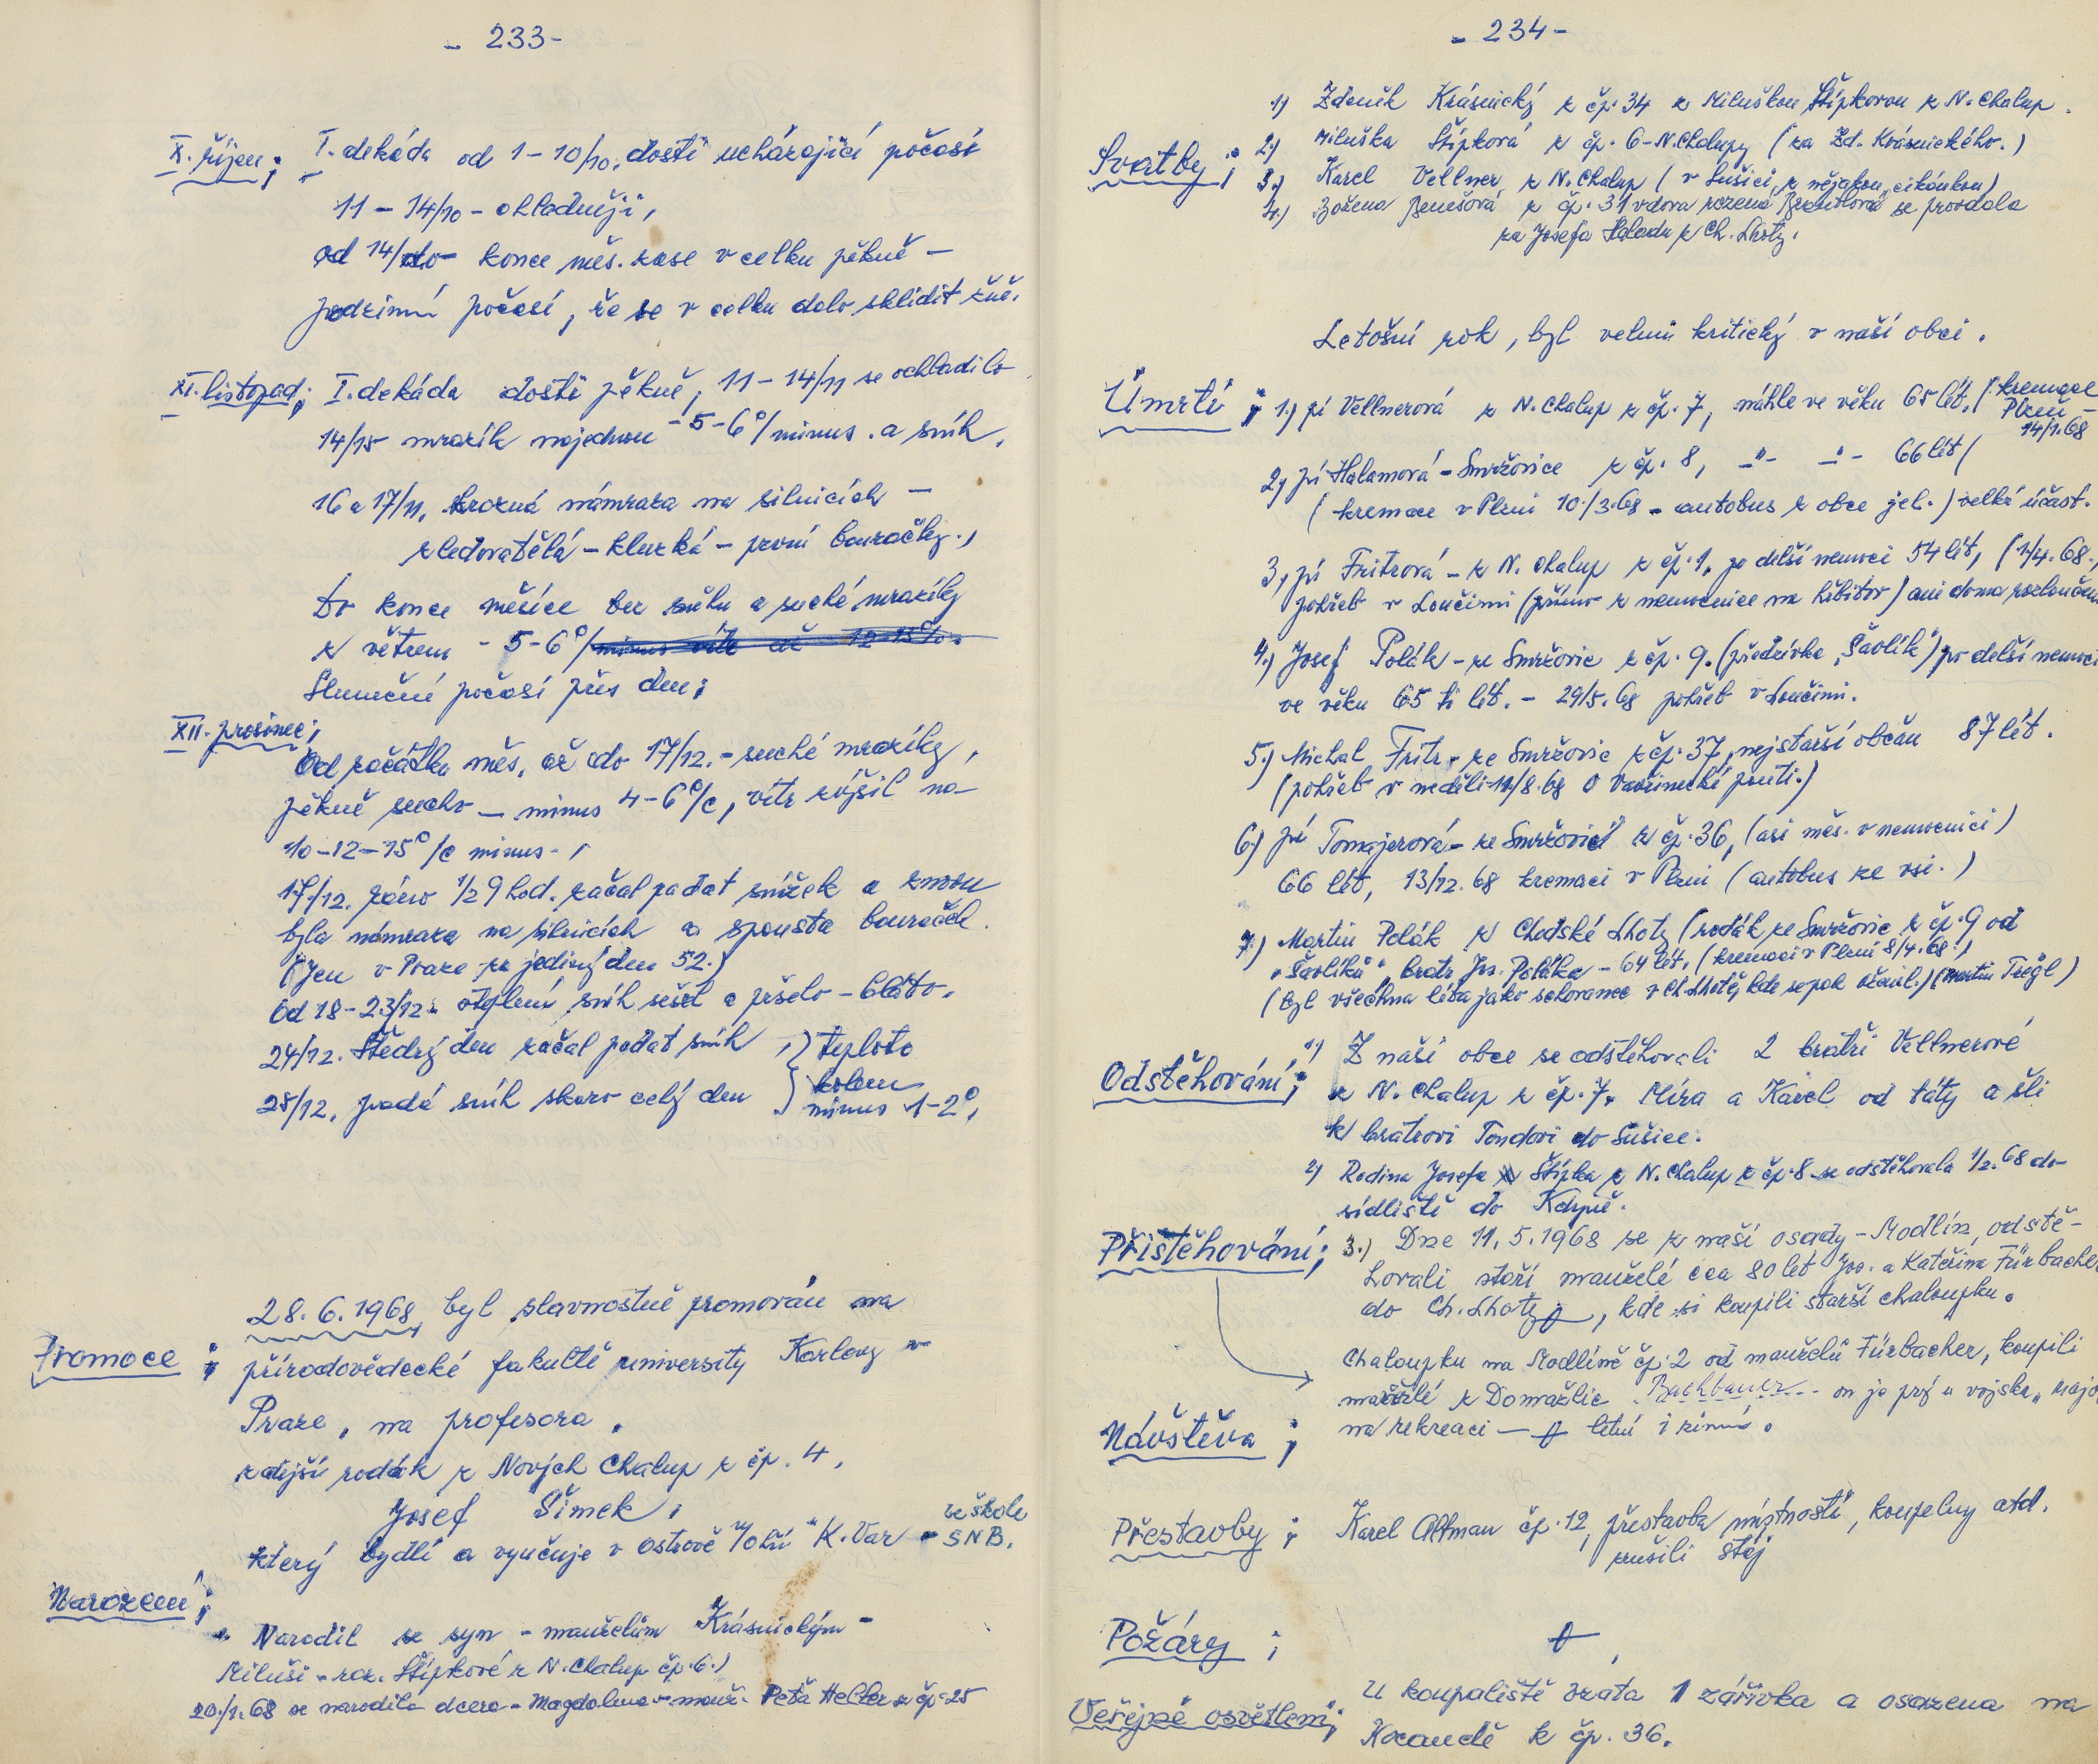 - 233 -
X. říjen; I. dekáda od 1-10/10. dosti ucházející počasí
11 - 14/10 - chladněji,
od 14/do konce měs. zase v celku pěkné -
podzimní počasí, že se v celku dalo sklidit
XI. listopad; I. dekáda dosti pěkné, 11 - 14/11 se ochladilo
14/15 mrazík najednou -5-6°/minus. a sníh,
16 a 17/11. hrozná námraza na silnicích -
zledovatělá - kluzká - první bouračky.,
do konce měsíce bez sněhu a suché mrazíky
z větrem - 5-6°/
Slunečné počasí přes den;
XII. prosinec;
Od začátku měs. až do 17/12. - suché mrazíky,
pěkné sucho - minus 4-6°/c, vítr zvýšil na
10-12-15°/c minus - ,
17/12. ráno 1/2 9 hod. začal padat snížek a znovu
byla námraza na silnicích a spousta bouraček.
(Jen v Praze za jediný den 52.)
Od 18-23/12. oteplení sníh sešel a pršelo - bláto.
24/12. Štědrý den začal padat sníh , } teplota
28/12, padá sníh skoro celý den } kolem
minus 1-2°,
28. 6. 1968 byl slavnostně promován na
Promoce ; přírodovědecké fakultě university Karlovy v
Praze, na profesora.
zdejší rodák z Nových Chalup z čp. 4,
Josef Šimek,
ve škole
který bydlí a vyučuje v Ostrově n/Ohří K. Var - SNB.
Narození;
Narodil se syn - manželům Krásnickým -
Miluši - roz. Štípkové z N. Chalup čp. 6.)
20./1.68 se narodila dcera - Magdalena - manž. Peťa Heller z čp. 25
- 234 -
1) Zdeněk Krásnický z čp. 34 z Miluškou Štípkovou z N. Chalup.
Svatby; 2.) Miluška Štípková z čp. 6 - N. Chalupy (za Zd. Krásnického.)
3.) Karel Vellner, z N. Chalup (v Sušici, z nějakou "cikánkou)
4.) Božena Benešová z čp. 31 vdova rozená se provdala
za Josefa Haladu z Ch. Lhoty.
Letošní rok, byl velmi kritický v naší obci.
Úmrtí ; 1.) pí Vellnerová z N. Chalup z čp. 7, náhle ve věku 65 lét. (kremace
Plzeň -
14/1.68
2) pí Halamová - Smržovice z čp. 8, -"- -"- 66 lét (
(kremace v Plzni 10./3.68 - autobus z obce jel.) velká účast.
3) pí Fritzová - z N. Chalup z čp. 1, po delší nemoci 54 lét, (1/4.68.,
pohřeb v Loučimi (přímo z nemocnice na hřbitov) ani doma rozloučen
4.) Josef Polák - ze Smržovic z čp. 9. (přezdívka "Šavlík") po delší nemoci
ve věku 65 ti lét. - 29/5.68 pohřeb v Loučimi.
5.) Michal Fritz - ze Smržovic z čp. 37, nejstarší občan 87 lét.
(pohřeb v neděli 11/8.68 o Vavřinecké pouti.)
6) pí Tomajerová - ze Smržovic z čp. 36, (asi měs. v nemocnici)
66 lét, 13/12.68 kremaci v Plzni (autobus ze vsi.)
7) Martin Polák z Chodské Lhoty (rodák ze Smržovic z čp. 9 od
"Šavlíků", bratr Jos. Poláka - 64 lét. (kremaci v Plzni 8/4.68.)
(byl všechna léta jako schovanec v Ch. Lhotě, kde se pak oženil.) (Martin Tregl)
Odstěhování; 1) Z naší obce se odstěhovali 2 bratři Vellnerové
z N. Chalup z čp. 7. Míra a Karel od táty a šli
k bratrovi Tondovi do Sušice.
2) Rodina Josefa Štípka z N. Chalup z čp. 8 se odstěhovala 1/2.68 do
sídliště do Kdyně.
Přistěhování; 3.) Dne 11. 5. 1968 se z naší osady - Modlín, odstě-
hovali staří manželé cca 80 lét Jos. a Kateřina Fürbacher
do Ch. Lhoty, kde si koupili starší chaloupku.
Chaloupku na Modlíně čp. 2 od manželů Fürbacher, koupili
manželé z Domažlic Bachbauer - on je prý u vojska, major
Návštěva ; na rekreaci - letní i zimní.
Přestavby ; Karel Altman čp. 12, přestavba místností, koupelny atd.
zrušili stáj
Požáry ;
Veřejné osvětlení; U koupaliště vzata 1 zářivka a osazena na
Kocandě k čp. 36.